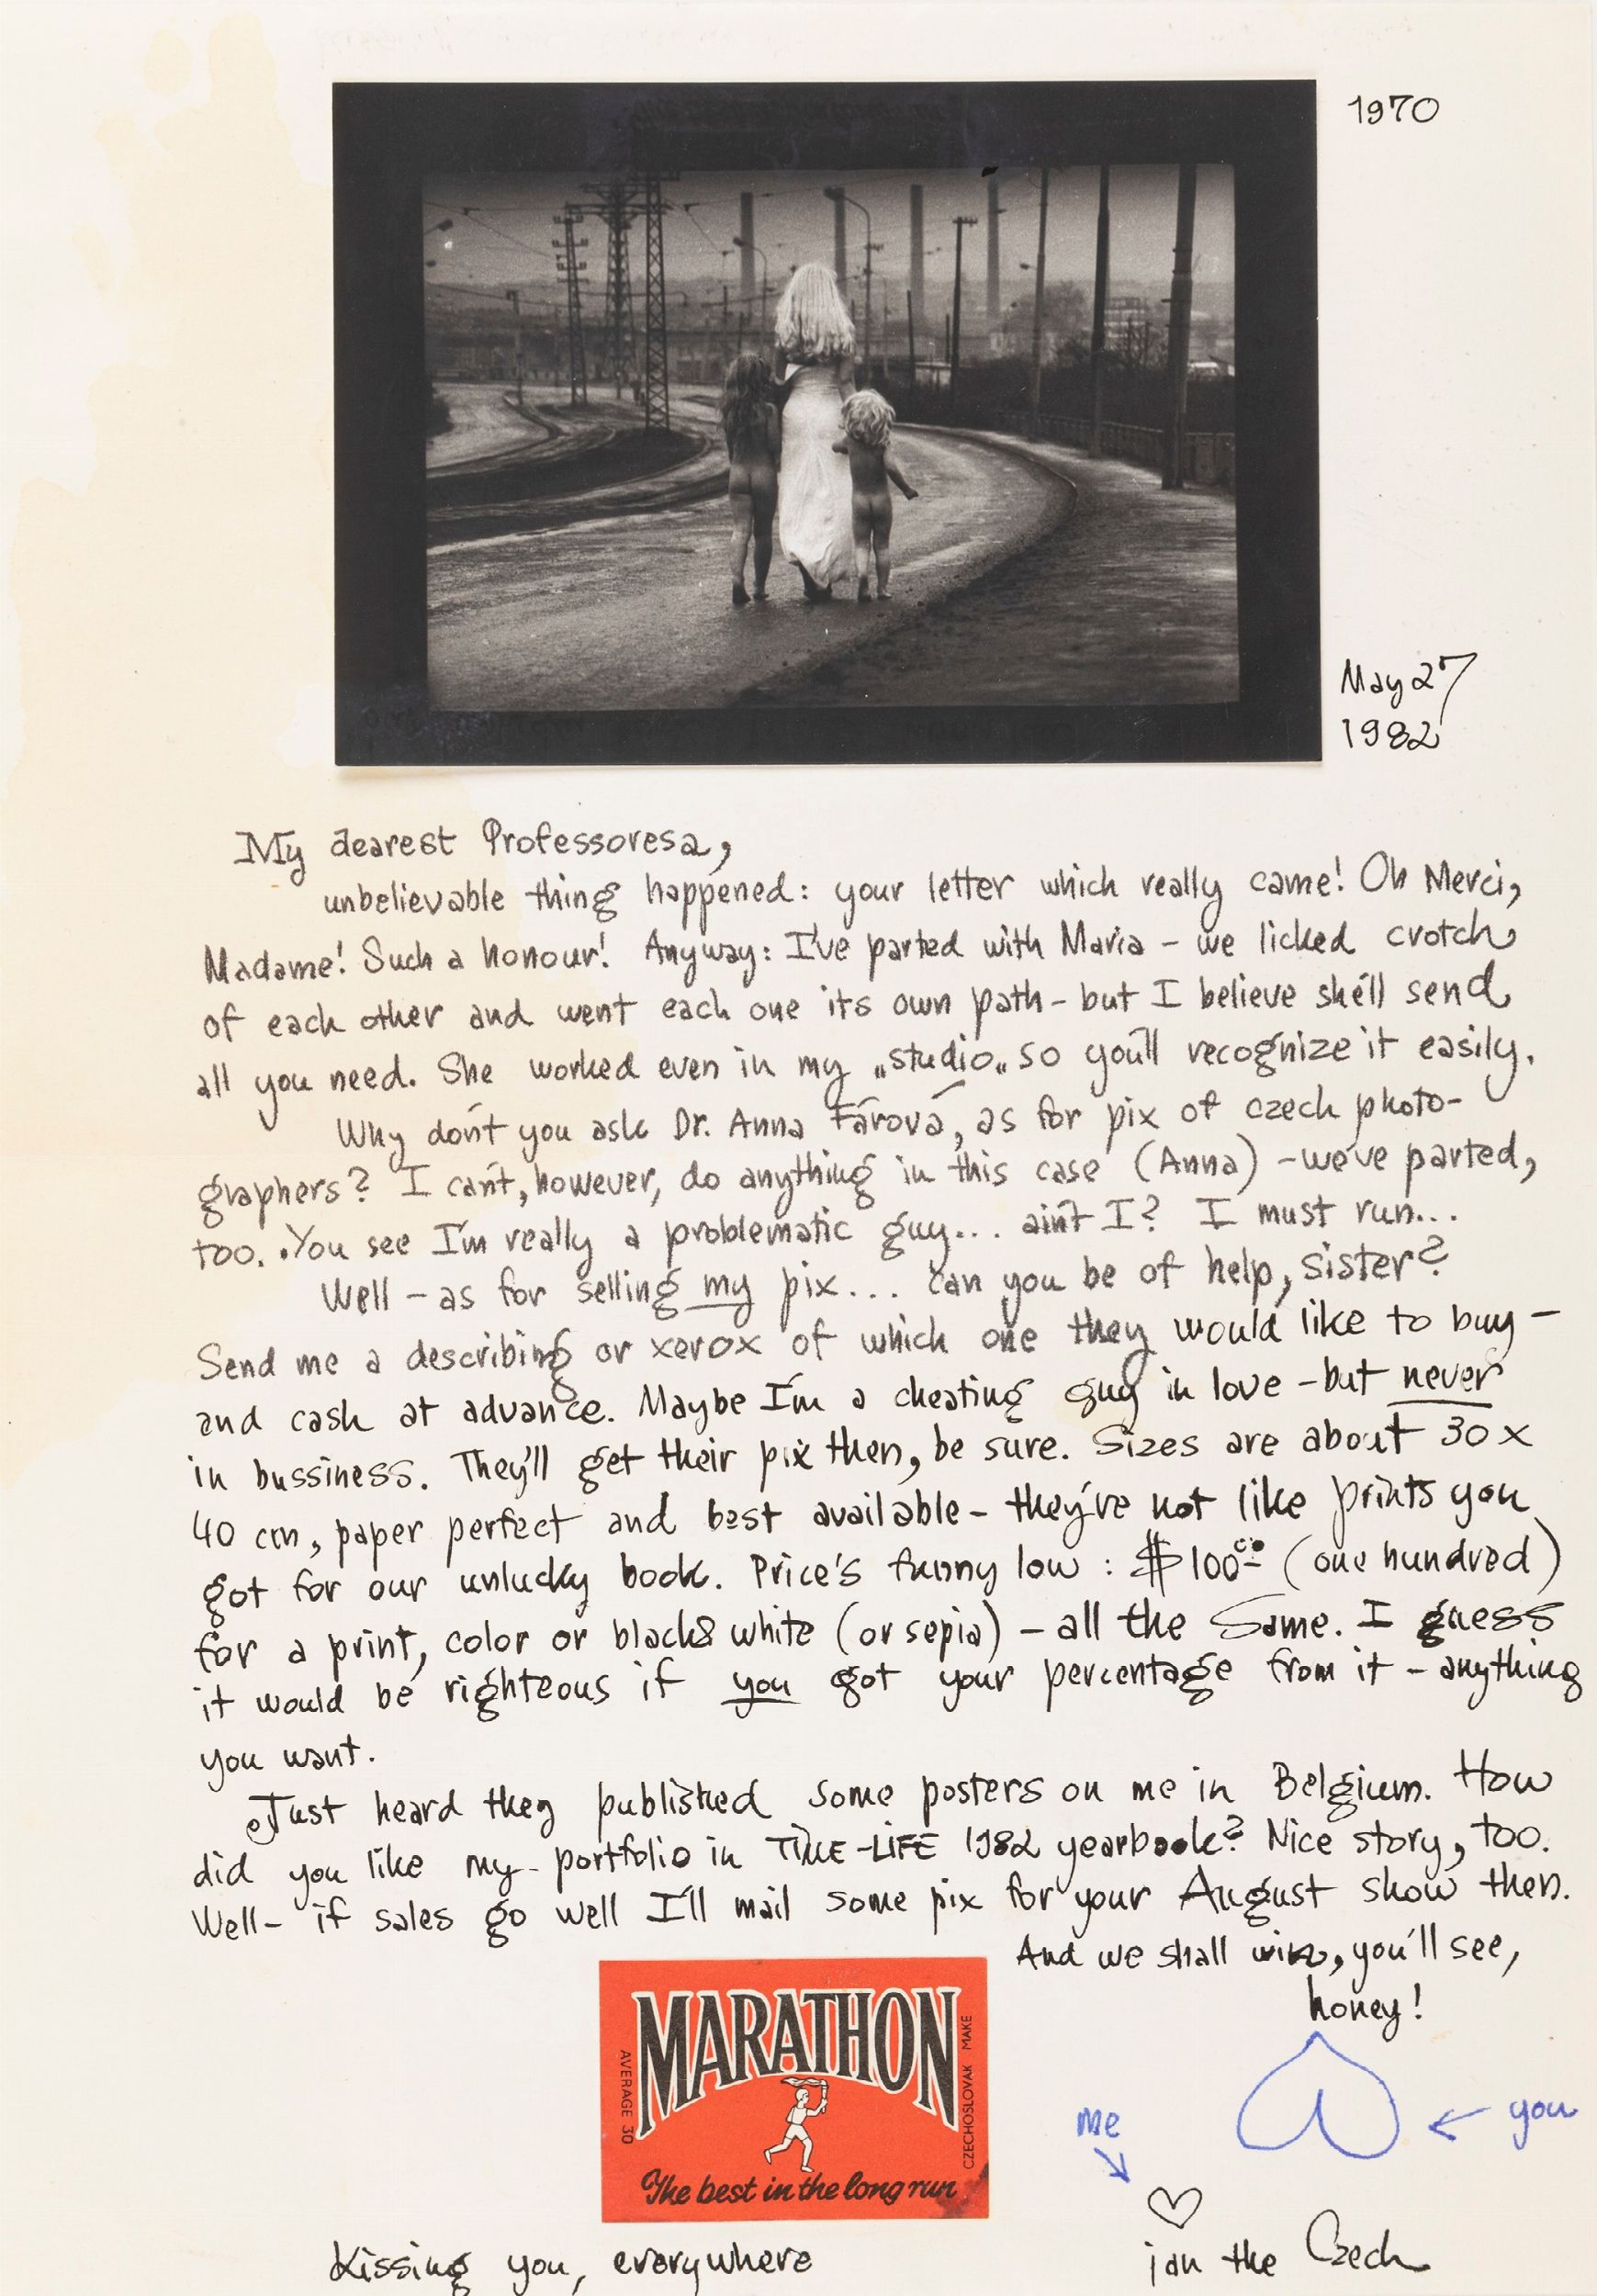 1970
May 27
1982
My dearest Professoresa,
unbelievable thing happened: your letter which really came! Oh Merci,
Madame! Such a honour! Anyway: I've parted with Maria – we licked crotch
of each other and went each one its own path – but I believe she'll send
all you need. She worked even in my „studio„ so you'll recognize it easily.
Why don't you ask Dr. Anna Fárová, as for pix of czech photo-
graphers? I can't, however, do anything in this case (Anna) – we've parted,
too. You see I'm really a problematic guy... ain't I? I must run...
Well – as for selling my pix... can you be of help, sister?
Send me a describing or xerox of which one they would like to buy –
and cash at advance. Maybe I'm a cheating guy in love – but never
in bussiness. They'll get their pix then, be sure. Sizes are about 30 x
40 cm, paper perfect and best available – they've not like prints you
got for our unlucky book. Price's funny low : $ 100.00 (one hundred)
for a print, color or black & white (or sepia) – all the Same. I guess
it would be righteous if you got your percentage from it – anything
you want.
Just heard they published some posters on me in Belgium. How
did you like my portfolio in TIME-LIFE 1982 yearbook? Nice story, too.
Well – if sales go well I'll mail some pix for your August show then.
And we shall win, you'll see,
honey!
MARATHON
AVERAGE 30
CZECHOSLOVAK MAKE
The best in the long run
me
you
Kissing you, everywhere
jan the Czech